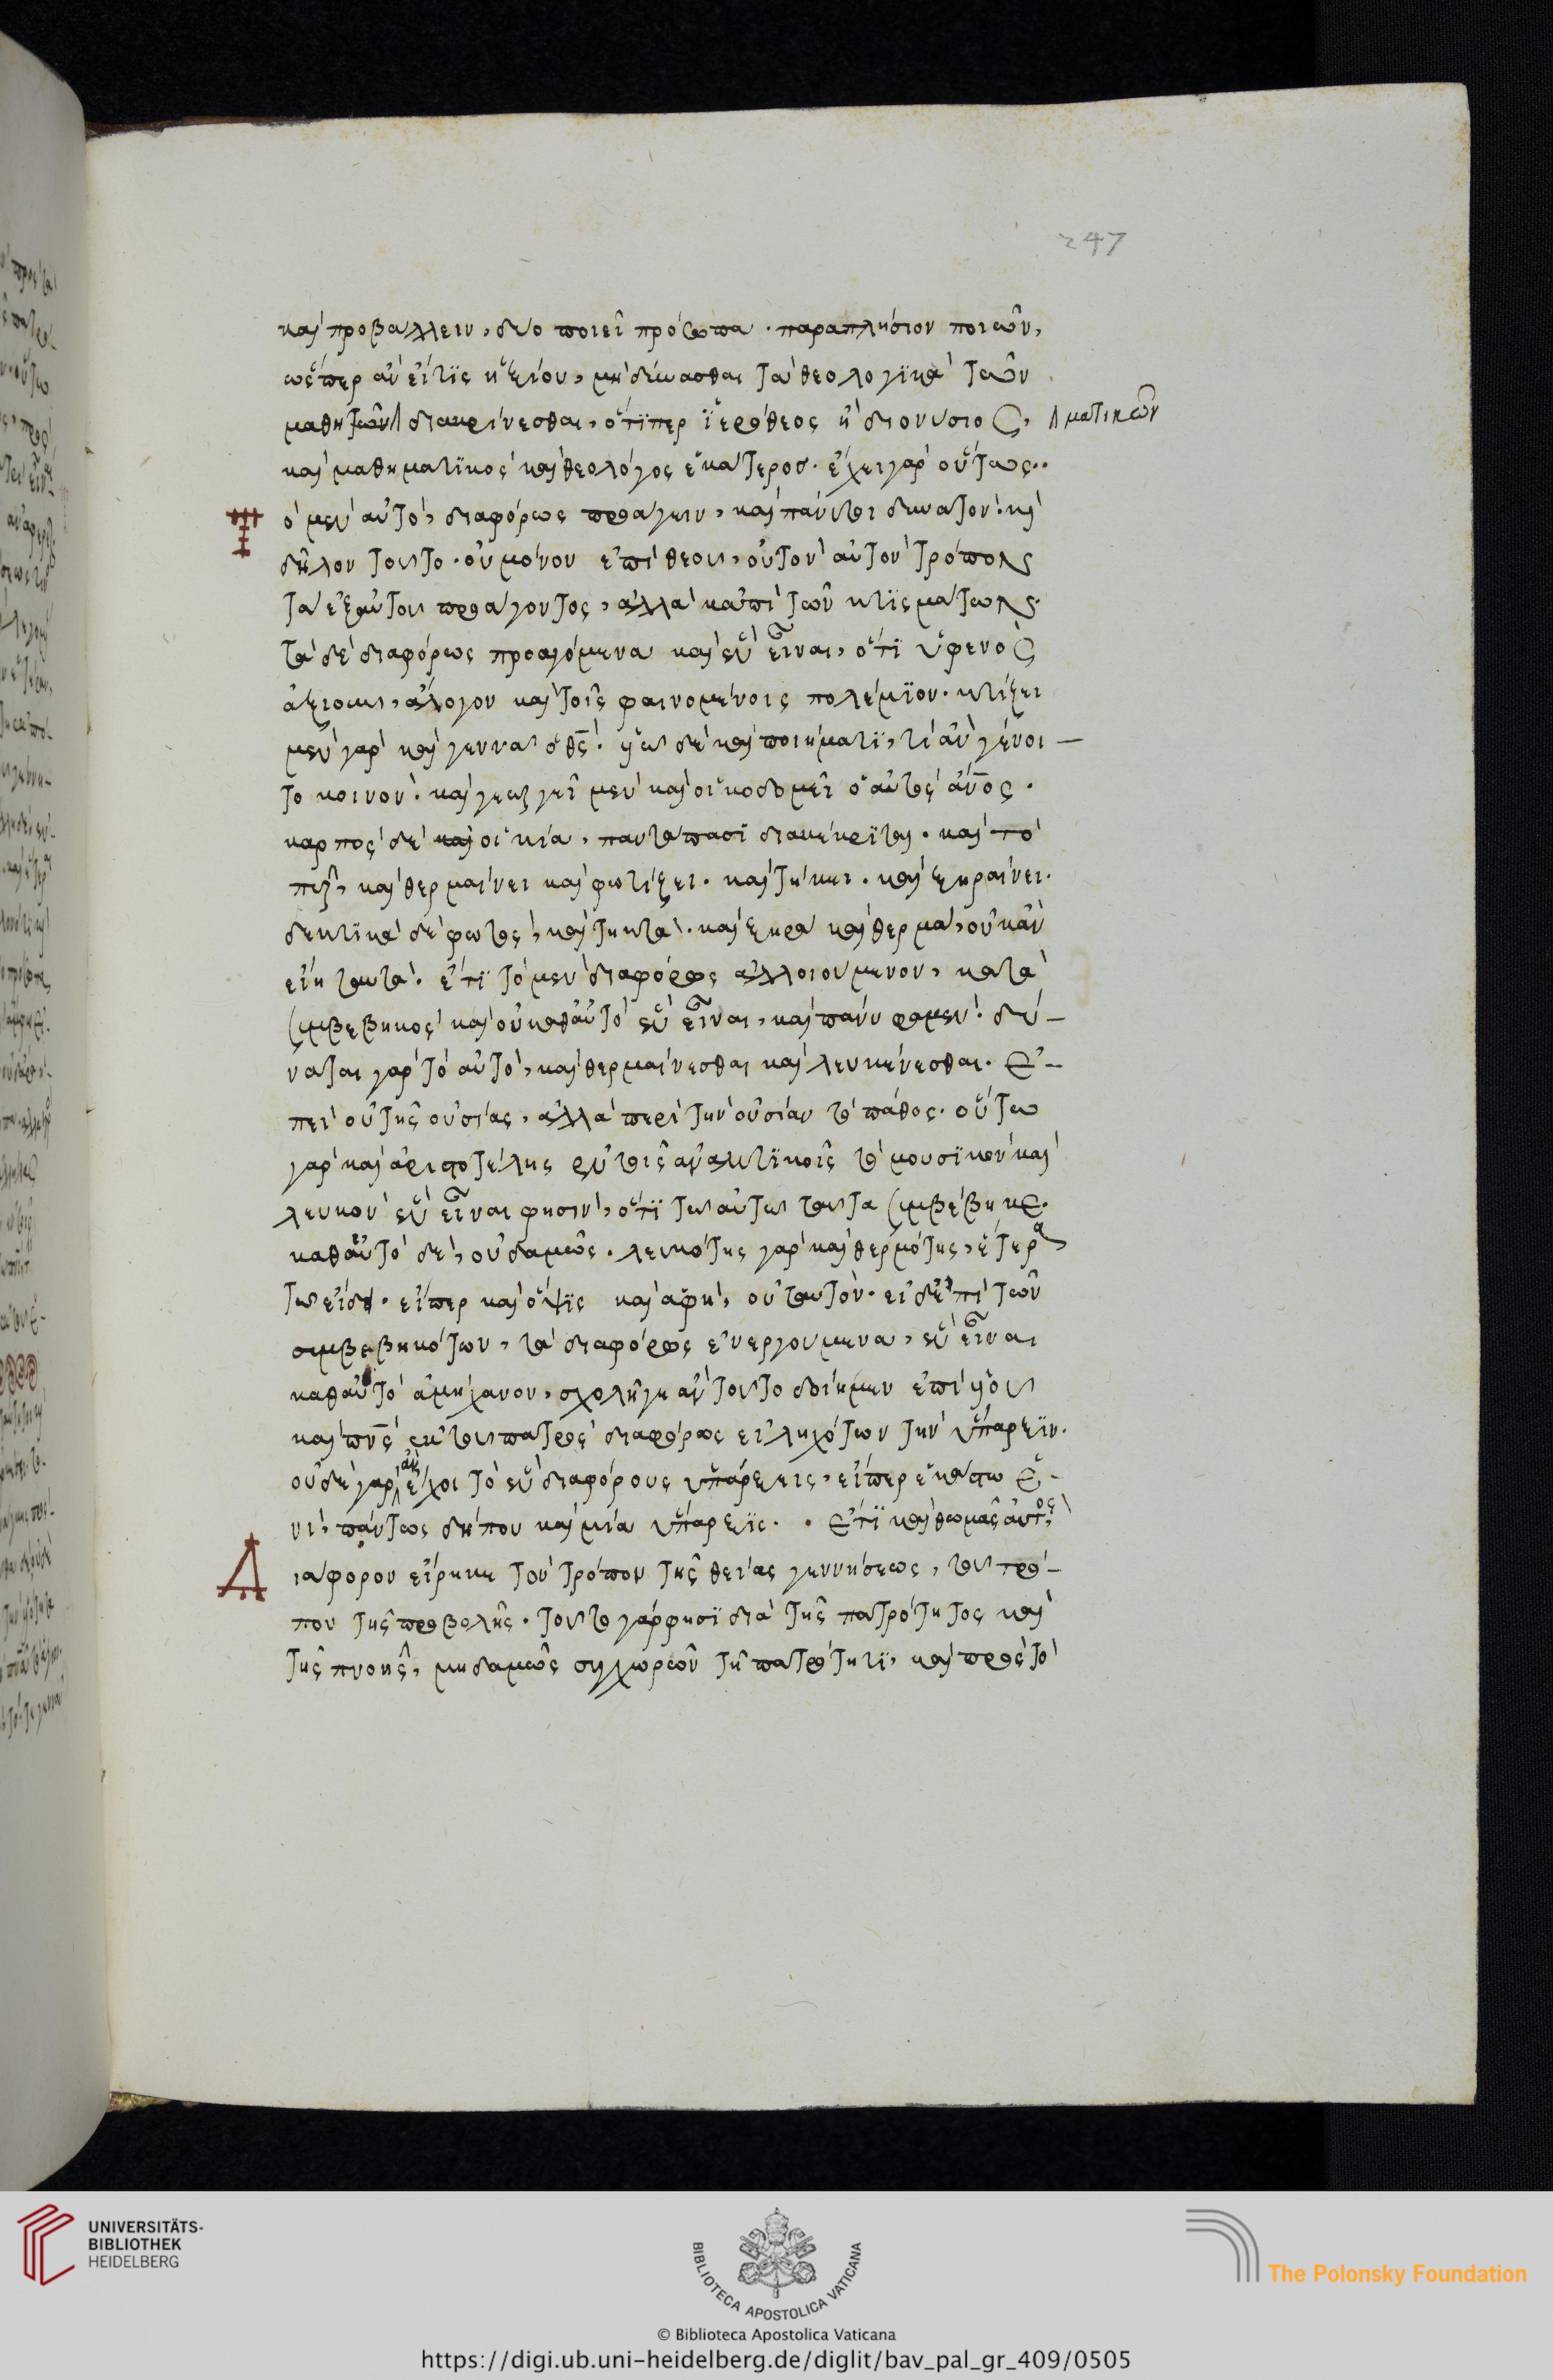 247
καὶ προβάλλειν, δύο ποιεῖ πρόσωπα. παραπλήσιον ποιῶν,
ὥσπερ ἂν εἴ τις ἠξίου, μὴ δύνασθαι τὰ θεολογικὰ τῶν
μαθητῶν διακρίνεσθαι, ὅτιπερ ἱερόθεος ἢ διονύσιος, ματικῶν
καὶ μαθηματικὸς καὶ θεολόγος ἑκάτερος. ἔχει γὰρ οὕτως.
τὸ μὲν αὐτὸ, διαφόρως προάγειν, καὶ πάντῃ δυνατόν. καὶ
δῆλον τοῦτο. οὐ μόνον ἐπὶ θεοῦ, οὐ τὸν αὐτὸν τρόπον
τὰ ἐξ αὐτοῦ προάγοντος, ἀλλὰ κἀπὶ τῶν κτισμάτων.
τὰ δὲ διαφόρως προαγόμενα καὶ ἓν εἶναι, ὅτι ὑφ' ἑνὸς
ἀξιοῦν, ἄλογον καὶ τοῖς φαινομένοις πολέμιον. κτίζει
μὲν γὰρ καὶ γεννᾶ ὁ θς. υἱῶ δὲ καὶ ποιήματι, τί ἂν γένοι-
το κοινόν. καὶ γεωργεῖ μὲν καὶ οἰκοδομεῖ ὁ αὐτὸς ἄνος.
καρπὸς δὲ καὶ οἰκία, παντάπασι διακέκριται. καὶ τὸ
πῦρ, καὶ θερμαίνει καὶ φωτίζει. καὶ τήκει. καὶ ξηραίνει.
δεκτικὰ δὲ φωτὸς, καὶ τηκτὰ. καὶ ξηρὰ καὶ θερμὰ, οὐκ ἂν
εἴη ταυτά. ἔτι τὸ μὲν διαφόρως ἀλλοιούμενον, κατὰ
συμβεβηκὸς καὶ οὐ καθ' αὑτὸ ἓν εἶναι, καὶ πάνυ φαμέν. δύ-
ναται γὰρ τὸ αὐτὸ, καὶ θερμαίνεσθαι καὶ λευκαίνεσθαι. ἐ-
πεὶ οὐ τῆς οὐσίας, ἀλλὰ περὶ τὴν οὐσίαν τὸ πάθος. οὕτω
γὰρ καὶ ἀριστοτέλης ἐν τοῖς ἀναλυτικοῖς τὸ μουσικὸν καὶ
λευκὸν ἓν εἶναι φησὶν, ὅτι τῶ αὐτῶ ταῦτα συμβέβηκε.
καθ' αὑτὸ δὲ, οὐδαμῶς. λευκότης γὰρ καὶ θερμότης, ἕτερα
τῶ εἴδει. εἴπερ καὶ ὄψις καὶ ἁφὴ, οὐ ταυτόν. εἰ δ' ἐπὶ τῶν
συμβεβηκότων, τὰ διαφόρως ἐνεργούμενα, ἓν εἶναι
καθ' αὑτὸ ἀμήχανον, σχολῇ γε ἂν τοῦτο δοίημεν ἐπὶ υἱοῦ
καὶ πνς ἐκ τοῦ πατρὸς διαφόρως εἰληχότων τὴν ὕπαρξιν.
οὐδὲ γὰρ ἂν ἔχοι τὸ ἓν διαφόρους ὑπάρξεις, εἴπερ ἑκάστω ἑ-
νὶ, πάντως δήπου καὶ μία ὕπαρξις. ἔτι καὶ θωμᾶς αὐτὸς
Διάφορον εἴρηκε τὸν τρόπον τῆς θείας γεννήσεως, τοῦ τρό-
που τῆς προβολῆς. τοῦτο γάρ φησι διὰ τῆς πατρότητος καὶ
τῆς πνοῆς, μηδαμῶς συγχωρῶν τῇ πατρότητι, καὶ πρὸς τὸ
UNIVERSITÄTS-
BIBLIOTHEK
HEIDELBERG
BIBLIOTECA APOSTOLICA VATICANA
The Polonsky Foundation
© Biblioteca Apostolica Vaticana
https://digi.ub.uni-heidelberg.de/diglit/bav_pal_gr_409/0505